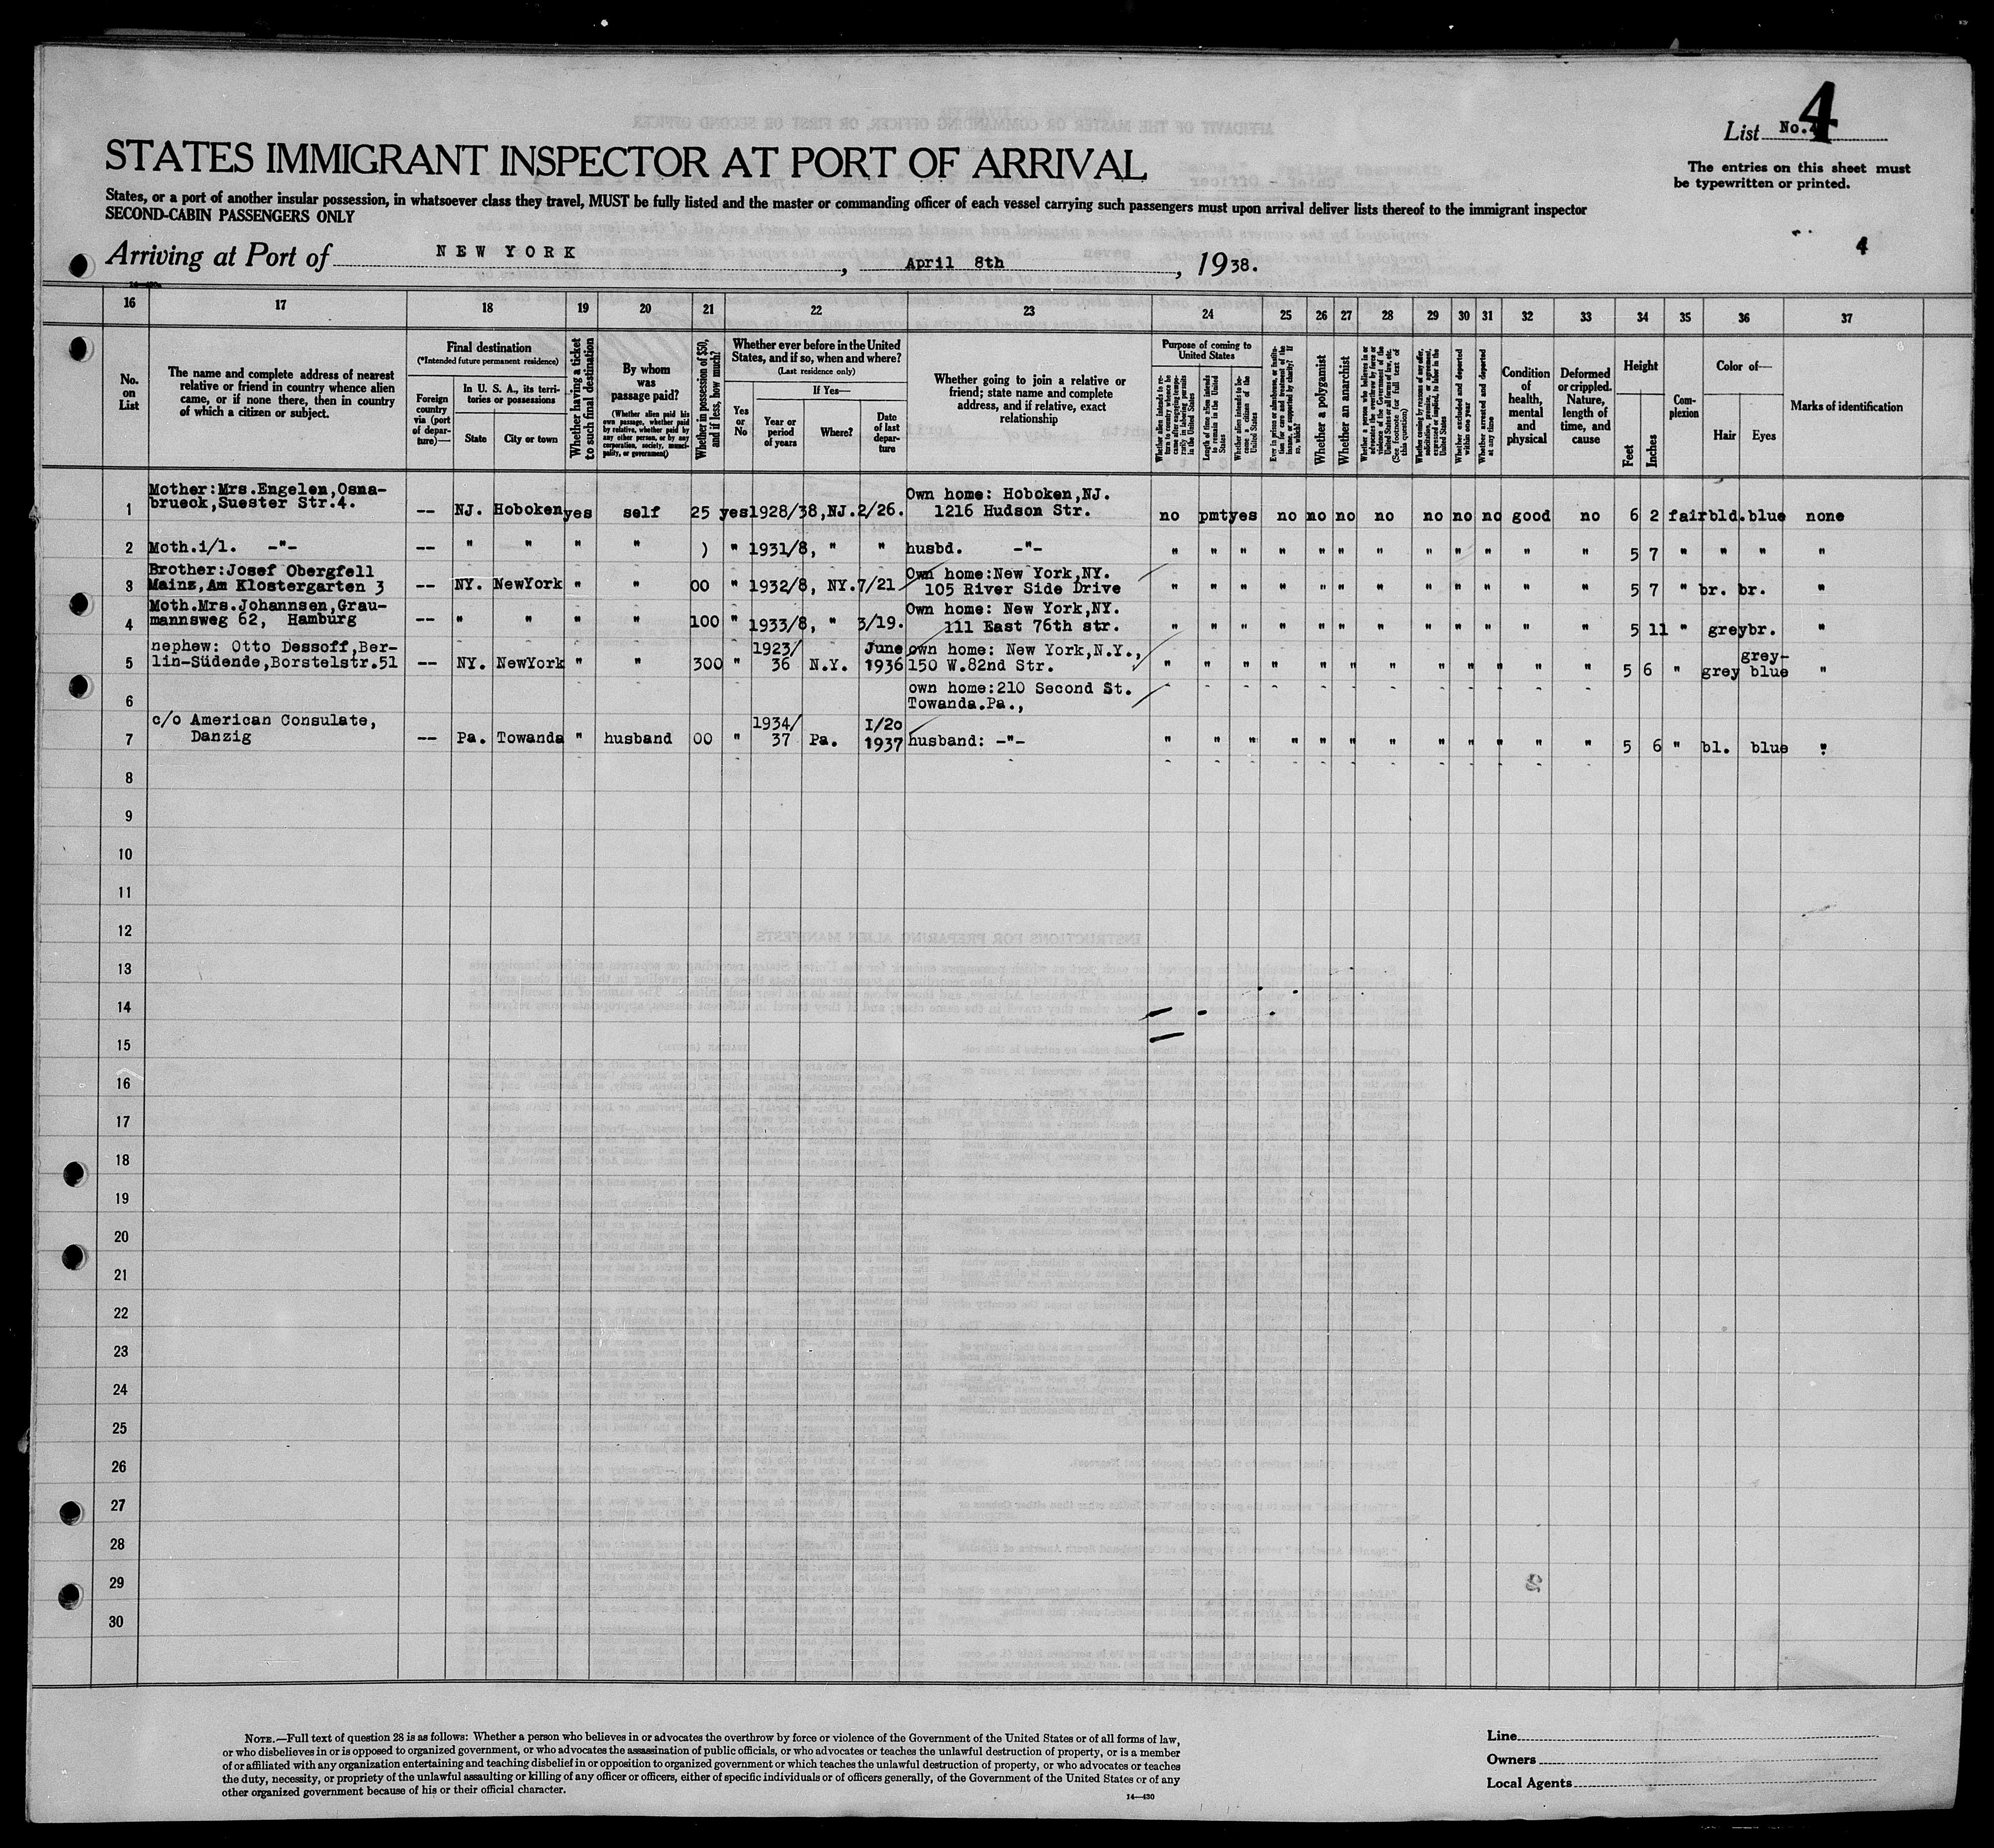 List No. 4
4
The entries on this sheet must
be typewritten or printed.
STATES IMMIGRANT INSPECTOR AT PORT OF ARRIVAL
States, or a port of another insular possession, in whatsoever class they travel, MUST be fully listed and the master or commanding officer of each vessel carrying such passengers must upon arrival deliver lists thereof to the immigrant inspector
SECOND-CABIN PASSENGERS ONLY
4
Arriving at Port of NEW YORK, April 8th, 1938.
16 17 18 19 20 21 22 23 24 25 26 27 28 29 30 31 32 33 34 35 36 37
No. on List
The name and complete address of nearest
relative or friend in country whence alien
came, or if none there, then in country
of which a citizen or subject.
Final destination
(*Intended future permanent residence)
Foreign country via (port of departure)—
In U. S. A., its territories or possessions
State
City or town
Whether having a ticket to such final destination
By whom was passage paid?
(Whether alien paid his own passage, whether paid by relative, whether paid by any other person, or by any corporation, society, municipality, or government)
Whether in possession of $50, and if less, how much?
Whether ever before in the United
States, and if so, when and where?
(Last residence only)
Yes or No
If Yes—
Year or period of years
Where?
Date of last departure
Whether going to join a relative or
friend; state name and complete
address, and if relative, exact
relationship
Purpose of coming to
United States
Length of time alien intends to remain in the United States
Whether alien intends to become a citizen of the United States
Whether a polygamist
Whether an anarchist
Whether excluded and deported within one year
Whether arrested and deported at any time
Condition of health, mental and physical
Deformed or crippled. Nature, length of time, and cause
Height
Feet
Inches
Complexion
Color of—
Hair
Eyes
Marks of identification
Mother:Mrs.Engelen,Osna-
brueck,Suester Str.4.
Own home: Hoboken,NJ.
1 -- NJ. Hoboken yes self 25 yes 1928/38,NJ. 2/26. 1216 Hudson Str. no pmt yes no no no no no no no good no 6 2 fair bld. blue none
2 Moth.i/l. -"- -- " " " " ) " 1931/8, " " husbd. -"- " " " " " " " " " " " " 5 7 " " " "
Brother:Josef Obergfell
Own home:New York,NY.
3 Mainz,Am Klostergarten 3 -- NY. NewYork " " 00 " 1932/8, NY. 7/21 105 River Side Drive " " " " " " " " " " " " 5 7 " br. br. "
Moth.Mrs.Johannsen,Grau-
Own home: New York,NY.
4 mannsweg 62, Hamburg -- " " " " 100 " 1933/8, " 3/19. 111 East 76th str. " " " " " " " " " " " " 5 11 " grey br. "
nephew: Otto Dessoff,Ber- 1923/ June own home: New York,N.Y., grey-
5 lin-Südende,Borstelstr.51 -- NY. NewYork " " 300 " 36 N.Y. 1936 150 W.82nd Str. " " " " " " " " " " " " 5 6 " grey blue "
own home:210 Second St.
6 Towanda.Pa.,
c/o American Consulate, 1934/ I/20
7 Danzig -- Pa. Towanda " husband 00 " 37 Pa. 1937 husband: -"- " " " " " " " " " " " " 5 6 " bl. blue "
8
9
10
11
12
13
14
15
16
17
18
19
20
21
22
23
24
25
26
27
28
29
30
NOTE.—Full text of question 28 is as follows: Whether a person who believes in or advocates the overthrow by force or violence of the Government of the United States or of all forms of law,
or who disbelieves in or is opposed to organized government, or who advocates the assassination of public officials, or who advocates or teaches the unlawful destruction of property, or is a member
of or affiliated with any organization entertaining and teaching disbelief in or opposition to organized government or which teaches the unlawful destruction of property, or who advocates or teaches
the duty, necessity, or propriety of the unlawful assaulting or killing of any officer or officers, either of specific individuals or of officers generally, of the Government of the United States or of any
other organized government because of his or their official character.
14—430
Line
Owners
Local Agents